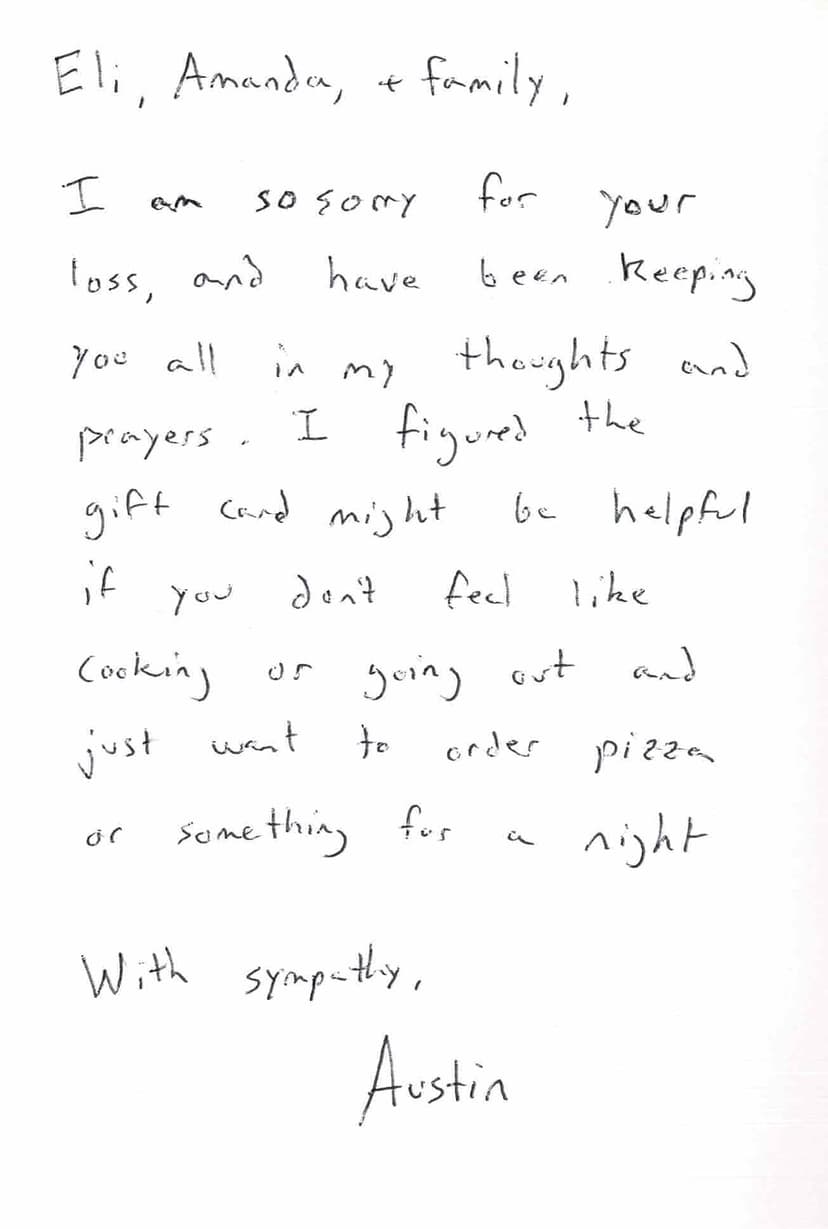 Eli, Amanda, + family,
I am so sorry for your
loss, and have been keeping
you all in my thoughts and
prayers. I figured the
gift card might be helpful
if you don't feel like
Cooking or going out and
just want to order pizza
or something for a night
With sympathy,
Austin